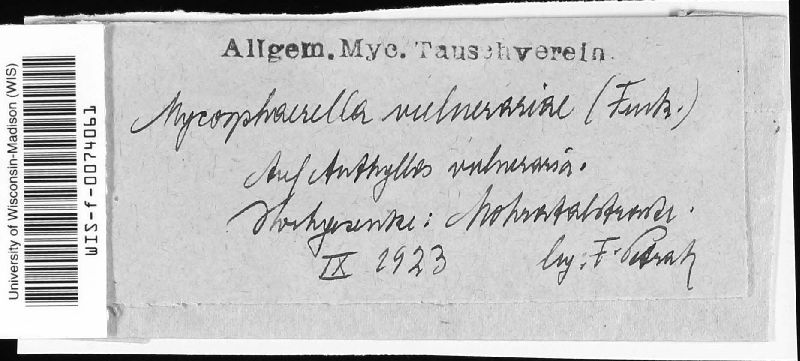 University of Wisconsin-Madison (WIS)
WIS-f-0074061
Allgem. Myc. Tauschverein.
Mycosphaerella vulnerariae (Fuck.)
Auf Anthyllis vulneraria.
Hochgesenke: Mohratalstrasse.
IX 1923 leg. F. Petrak